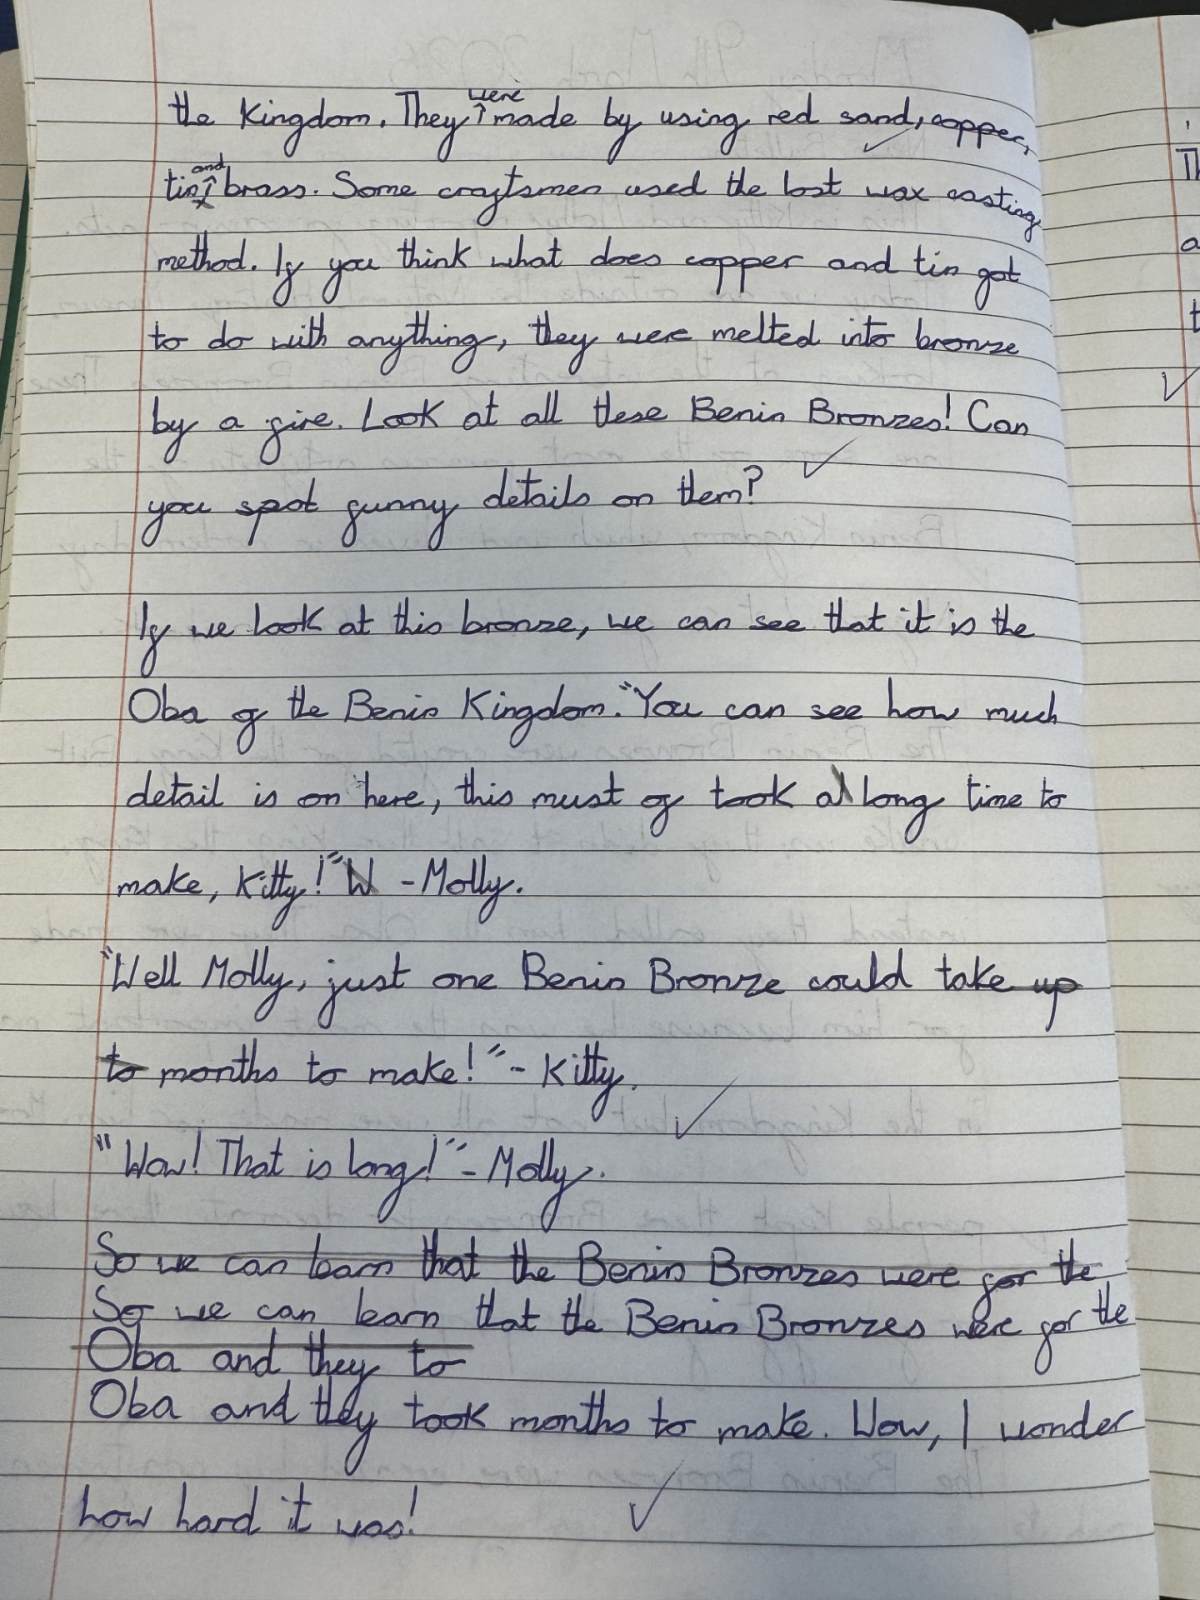 the Kingdom. They were made by using red sand, copper,
tin and brass. Some craftsmen used the lost wax casting
method. If you think what does copper and tin got
to do with anything, they were melted into bronze
by a fire. Look at all these Benin Bronzes! Can
you spot funny details on them?
If we look at this bronze, we can see that it is the
Oba of the Benin Kingdom. "You can see how much
detail is on here, this must of took a long time to
make, Kitty!" W - Molly.
"Well Molly, just one Benin Bronze could take up
to months to make!" - Kitty.
"Wow! That is long!" - Molly.
So we can learn that the Benin Bronzes were for the
So we can learn that the Benin Bronzes were for the
Oba and they to
Oba and they took months to make. Wow, I wonder
how hard it was!